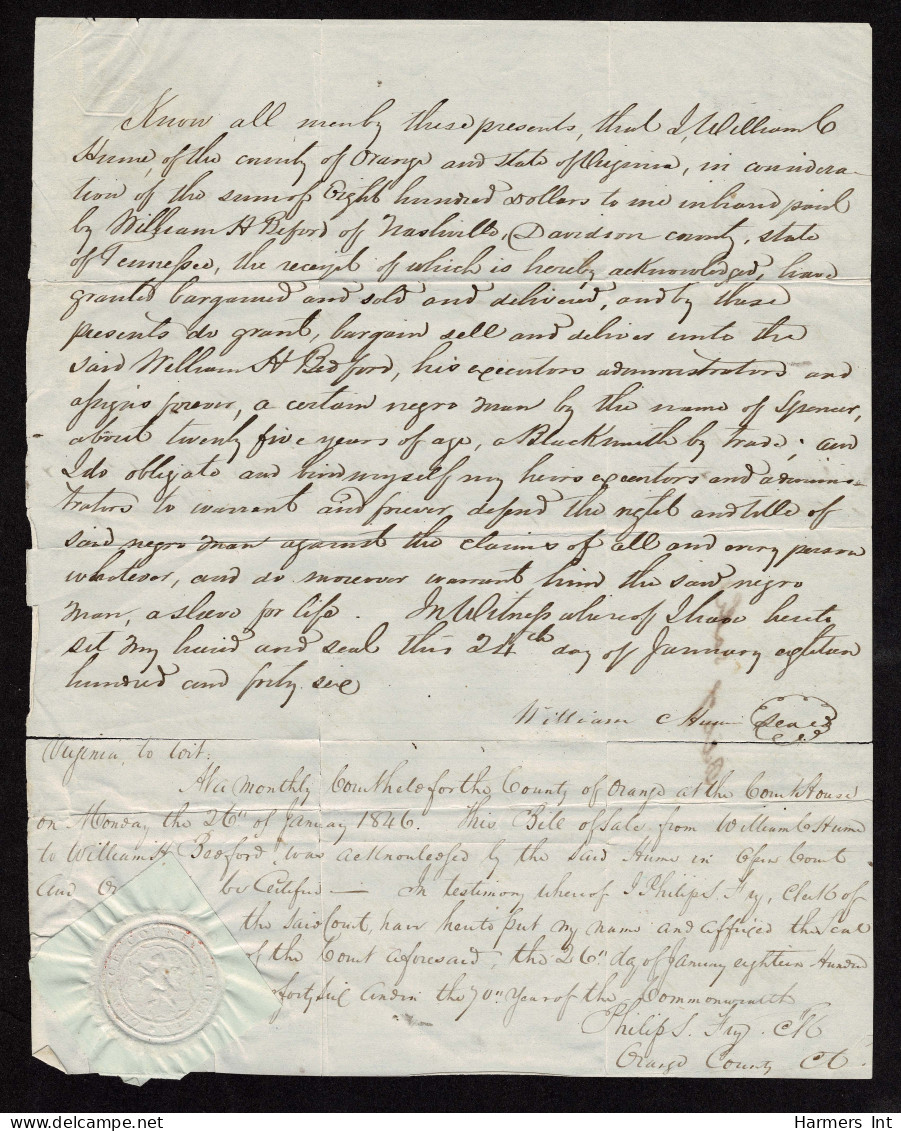 Know all men by these presents, that I, William C
Hume, of the county of Orange and state of Virginia, in considera-
tion of the sum of Eight hundred Dollars to me in hand paid
by William H Beford of Nashville, Davidson county, state
of Tennessee, the receipt of which is hereby acknowledged, have
granted bargained and sold and delivered, and by these
presents do grant, bargain sell and deliver unto the
said William H Bedford, his executors administrators and
assigns forever, a certain negro man by the name of Spencer,
about twenty five years of age, a Blacksmith by trade; and
I do obligate and bind myself my heirs executors and adminis-
trators to warrant and forever defend the right and title of
said negro man against the claims of all and every person
whatever, and do moreover warrant him the said negro
man, a slave for life. In Witness whereof I have hereto
set my hand and seal this 24th day of January eighteen
hundred and forty six
William C Hume Seal
Virginia, to wit:
At a monthly Court held for the County of Orange at the Court House
on Monday the 26th of January 1846. This Bill of Sale from William C Hume
to William H Bedford, was acknowledged by the said Hume in Open Court
and Or be Certified — In testimony whereof I Philip S. Fry, Clerk of
the said Court, have hereto put my name and affixed the seal
of the Court aforesaid, the 26th day of January eighteen Hundred
forty six and in the 70th Year of the Commonwealth
Philip S. Fry. Clk
Orange County Ct.
Harmers Int